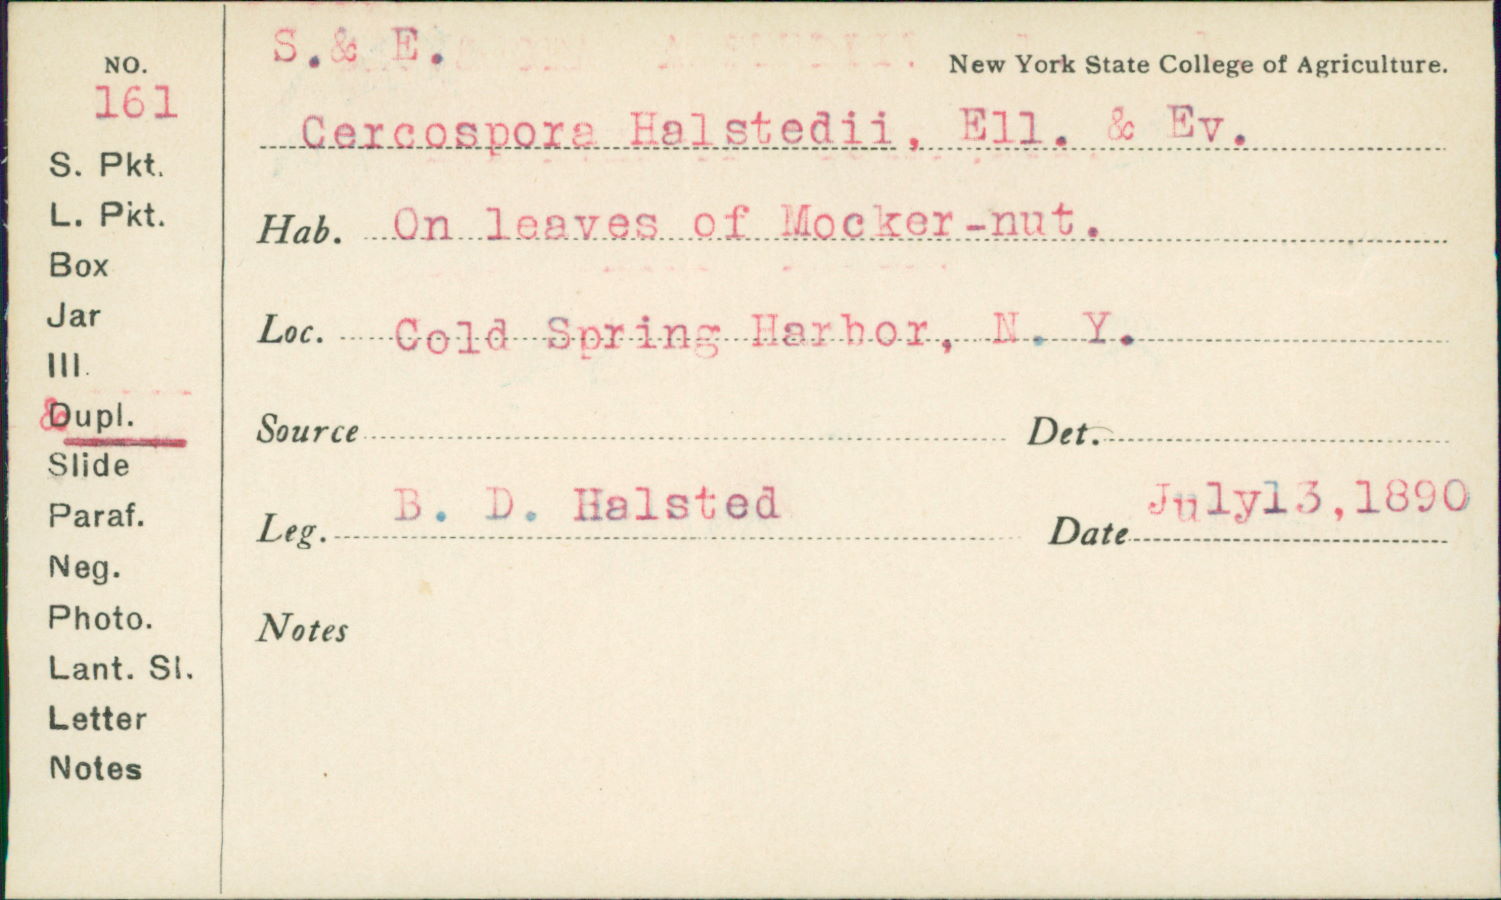 NO.
161
S. Pkt.
L. Pkt.
Box
Jar
Ill.
& Dupl.
Slide
Paraf.
Neg.
Photo.
Lant. Sl.
Letter
Notes
S. & E.
New York State College of Agriculture.
Cercospora Halstedii, Ell. & Ev.
Hab. On leaves of Mocker-nut.
Loc. Cold Spring Harbor, N. Y.
Source Det.
Leg. B. D. Halsted Date July13,1890
Notes